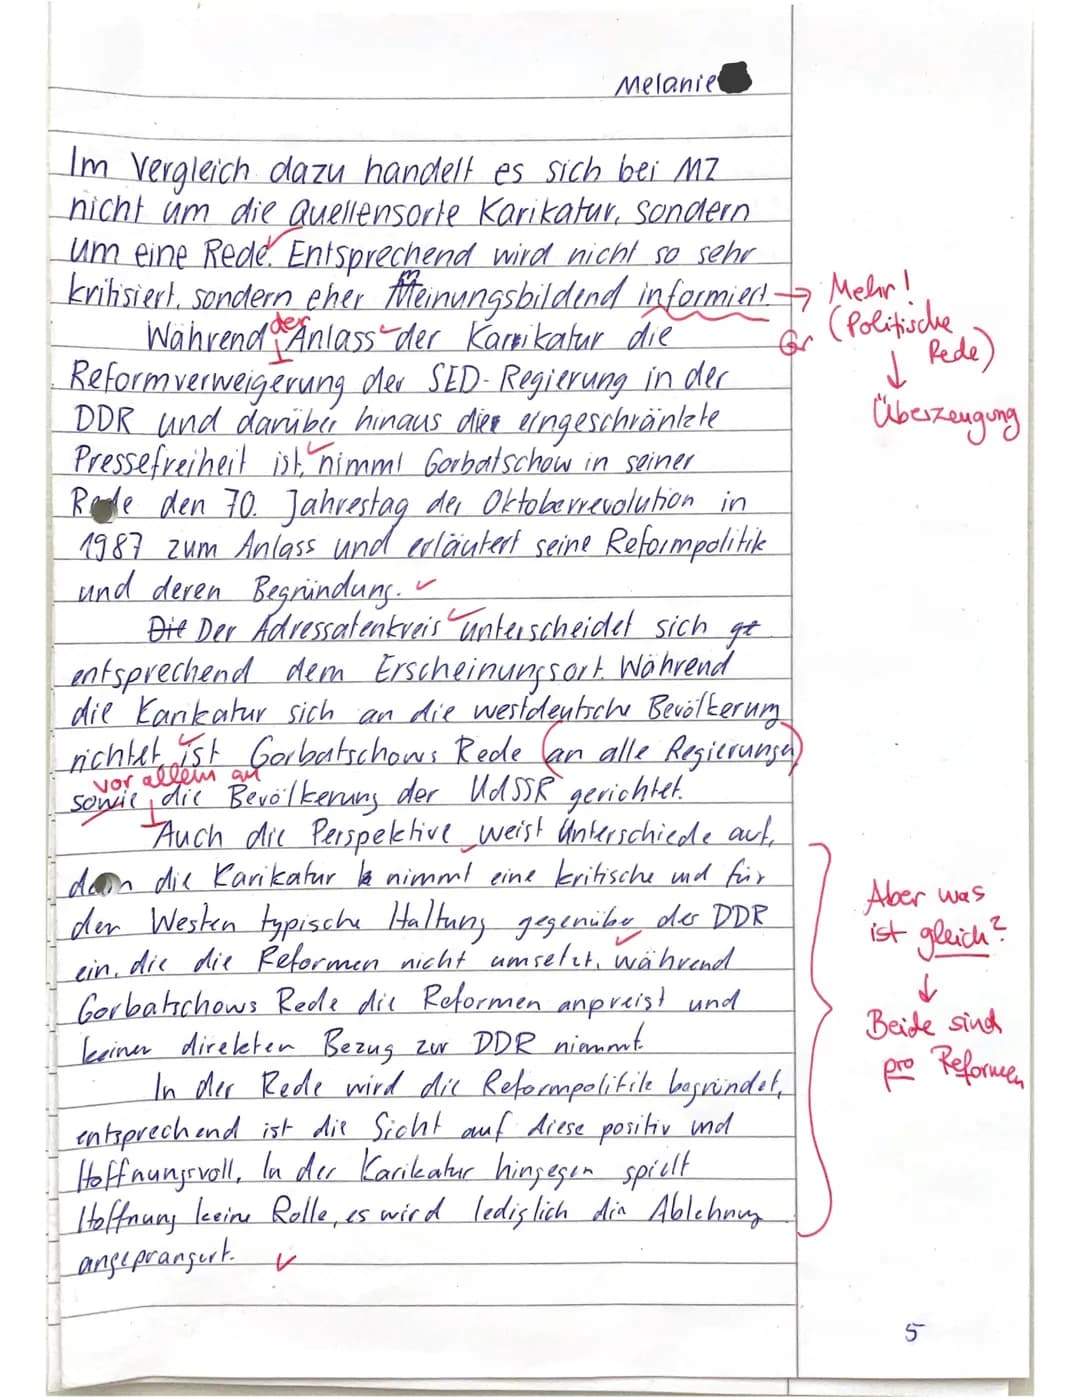 Melanie
Im Vergleich dazu handelt es sich bei MZ
nicht um die Quellensorte Karikatur, sondern
um eine Rede. Entsprechend wird nicht so sehr
kritisiert, sondern eher Meinungsbildend informiert. → Mehr!
(Politische Rede)
↓
Überzeugung
Gr
Während der Anlass der Karikatur die
Reformverweigerung der SED-Regierung in der
DDR und darüber hinaus die eingeschränkte
Pressefreiheit ist, nimmt Gorbatschow in seiner
Rede den 70. Jahrestag der Oktoberrevolution in
1987 zum Anlass und erläutert seine Reformpolitik
und deren Begründung.
Die Der Adressatenkreis unterscheidet sich ge
entsprechend dem Erscheinungsort. Während
die Karikatur sich an die westdeutsche Bevölkerung
richtet, ist Gorbatschows Rede (an alle Regierungen)
vor allem an
sowie die Bevölkerung der UdSSR gerichtet.
Auch die Perspektive weist Unterschiede auf,
denn die Karikatur nimmt eine kritische und für
den Westen typische Haltung gegenüber der DDR
ein, die die Reformen nicht umsetzt, während
Gorbatschows Rede die Reformen anpreist und
keinen direkten Bezug zur DDR nimmt.
In der Rede wird die Reformpolitik begründet,
entsprechend ist die Sicht auf diese positiv und
Hoffnungsvoll, In der Karikatur hingegen spielt
Hoffnung keine Rolle, es wird lediglich die Ablehnung
angeprangert.
Aber was
ist gleich?
↓
Beide sind
pro Reformen
5